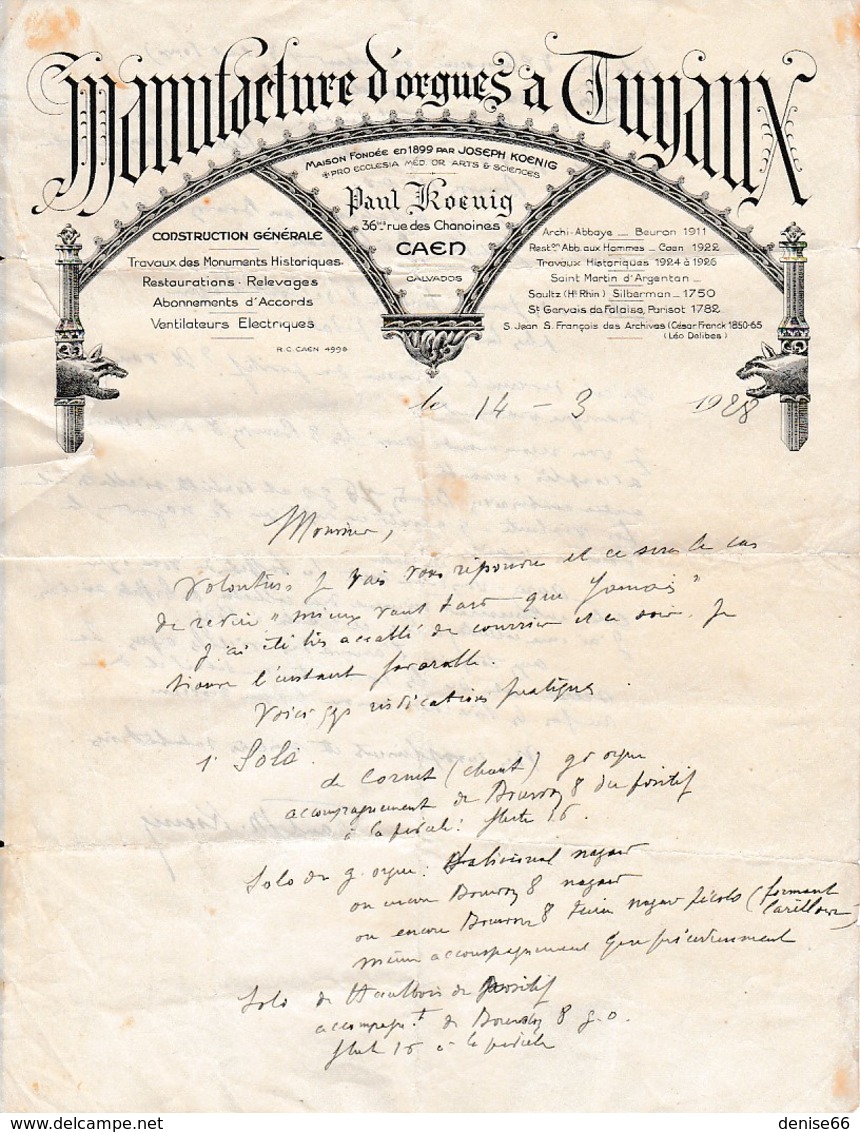 Manufacture d'orgues a Tuyaux
Maison Fondée en 1899 par Joseph Koenig
Pro Ecclesia Méd. Or Arts & Sciences
Paul Koenig
36 rue des Chanoines
CAEN
CALVADOS
Construction Générale
Travaux des Monuments Historiques.
Restaurations - Relevages
Abonnements d'Accords
Ventilateurs Electriques
R.C. CAEN 4998
Archi-Abbaye _ Beuron 1911
Reston Abb. aux Hommes _ Caen 1922
Travaux Historiques 1924 à 1926
Saint Martin d'Argentan _
Soultz (Ht Rhin) Silberman _ 1750
St Gervais de Falaise, Parisot 1782
S. Jean S. François des Archives (César Franck 1850-65
(Léo Delibes)
le 14 - 3 1928
Monsieur,
Volontiers je vais vous répondre et ce sera le cas
de redire "mieux vaut tard que jamais"
J'ai été très accablé de courrier et ce soir je
trouve l'instant favorable.
Voici qqs indications pratiques
1° Solo
de Cornet (chant) gd orgue
accompagnement de Bourdon 8 du positif
à la pédale : flute 16.
Solo du g. orgue : Salicional nazard
ou encore Bourdon 8 nazard
ou encore Bourdon 8 nazard picolo (formant
Carillon)
même accompagnement que précédemment
Solo de Hautbois de positif
accompagt de Bourdon 8 g.o.
flute 16 à la pédale
denise66